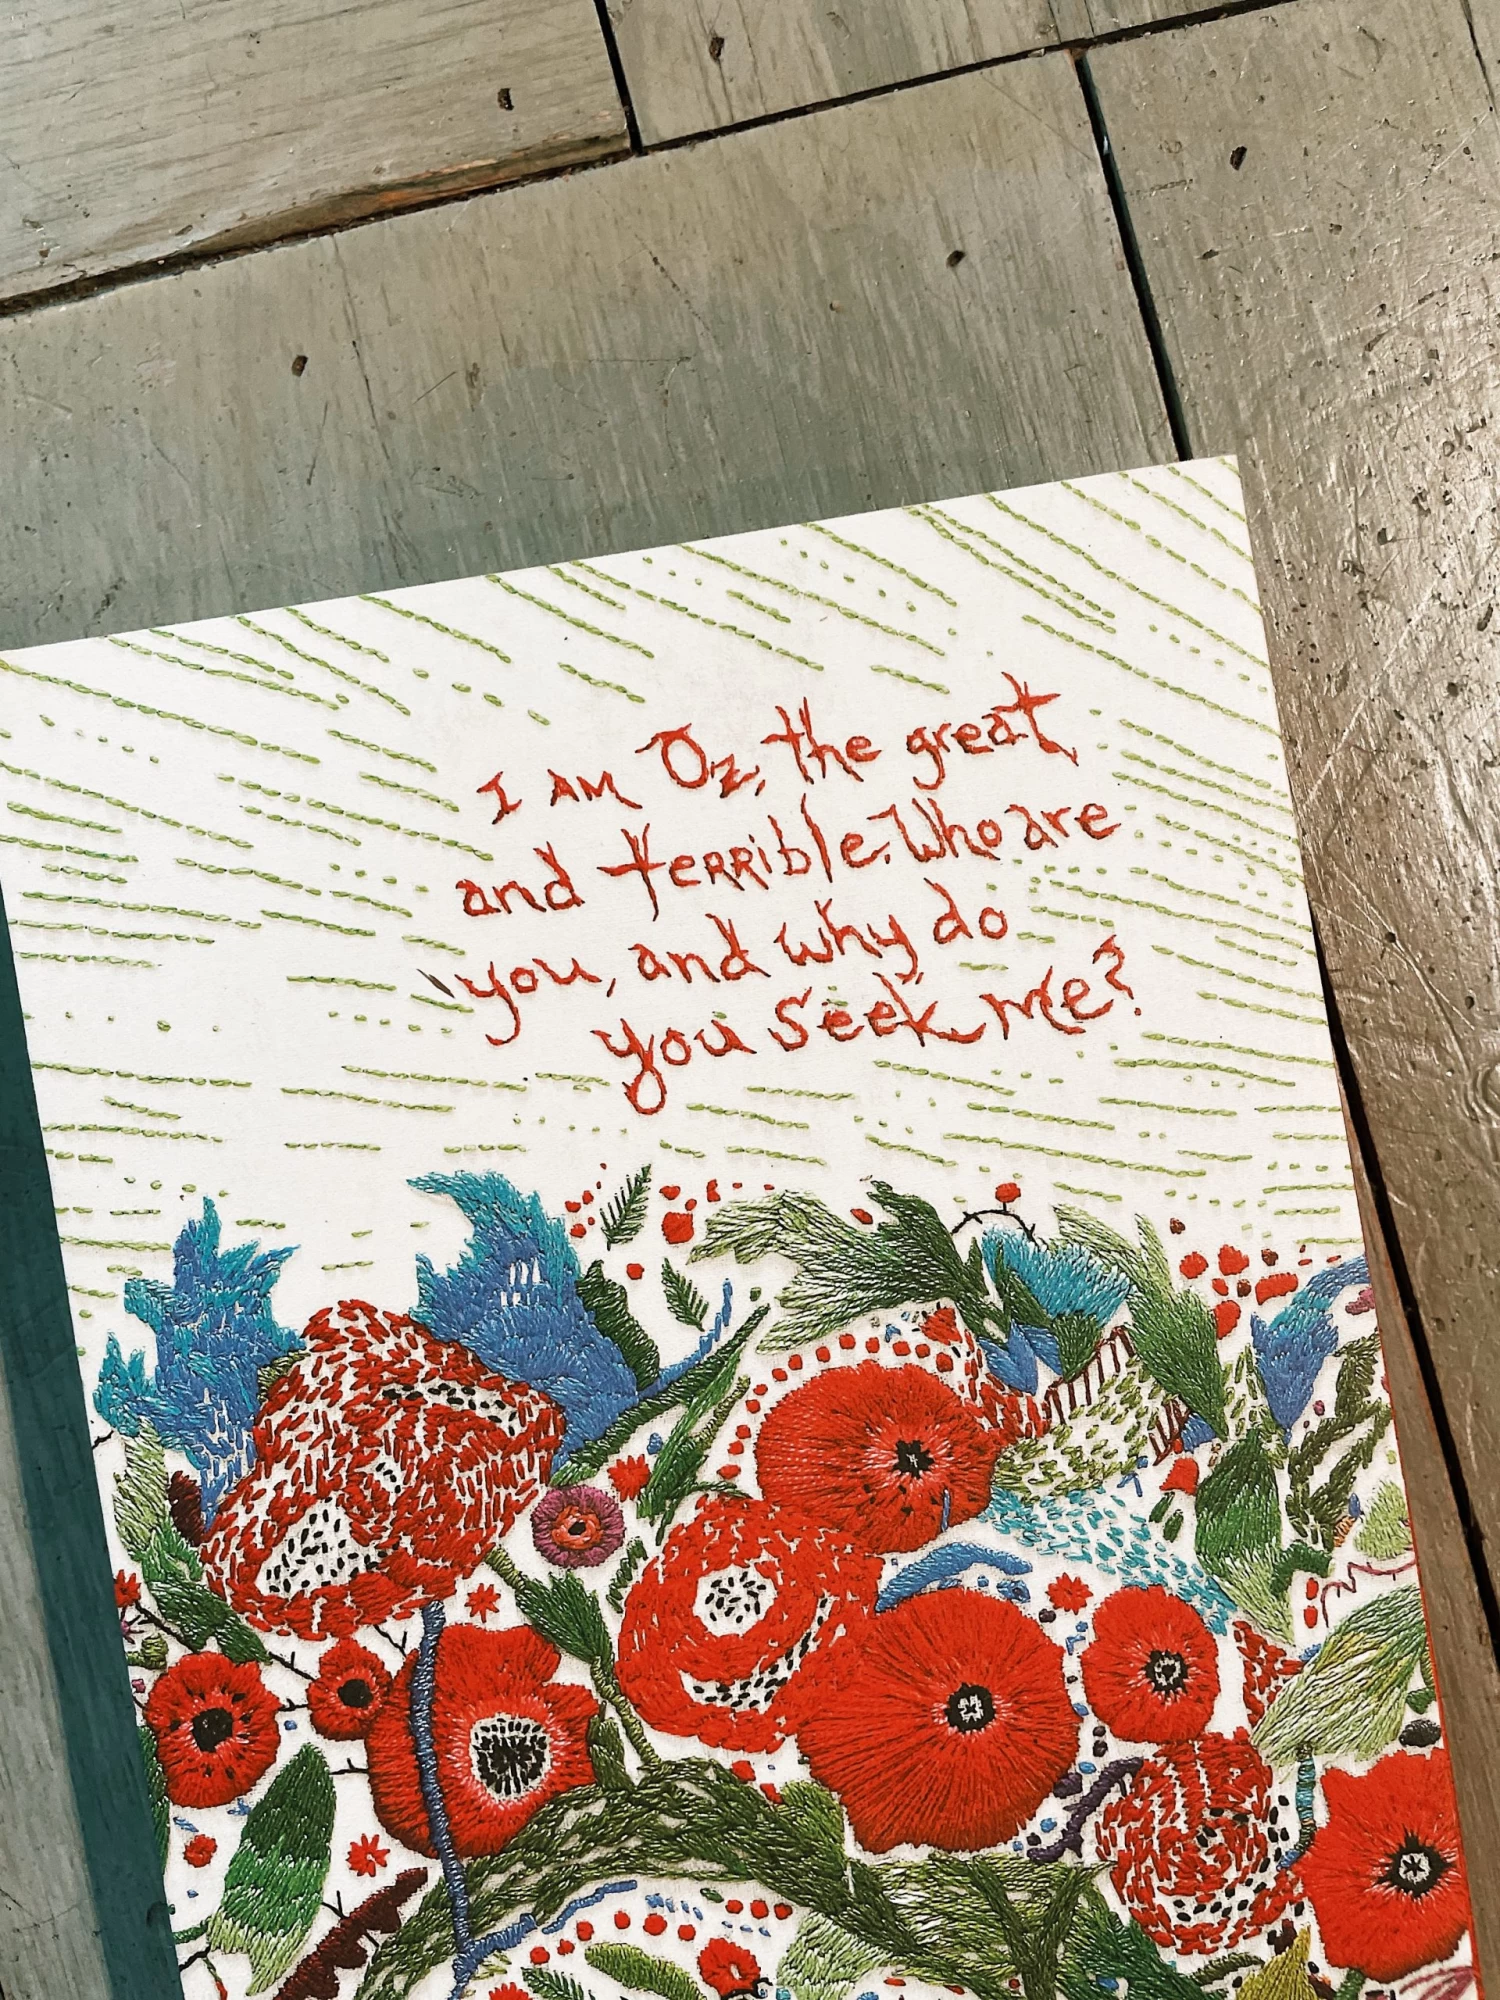 I AM Oz, the great
and terrible. Who are
you, and why do
you seek me?